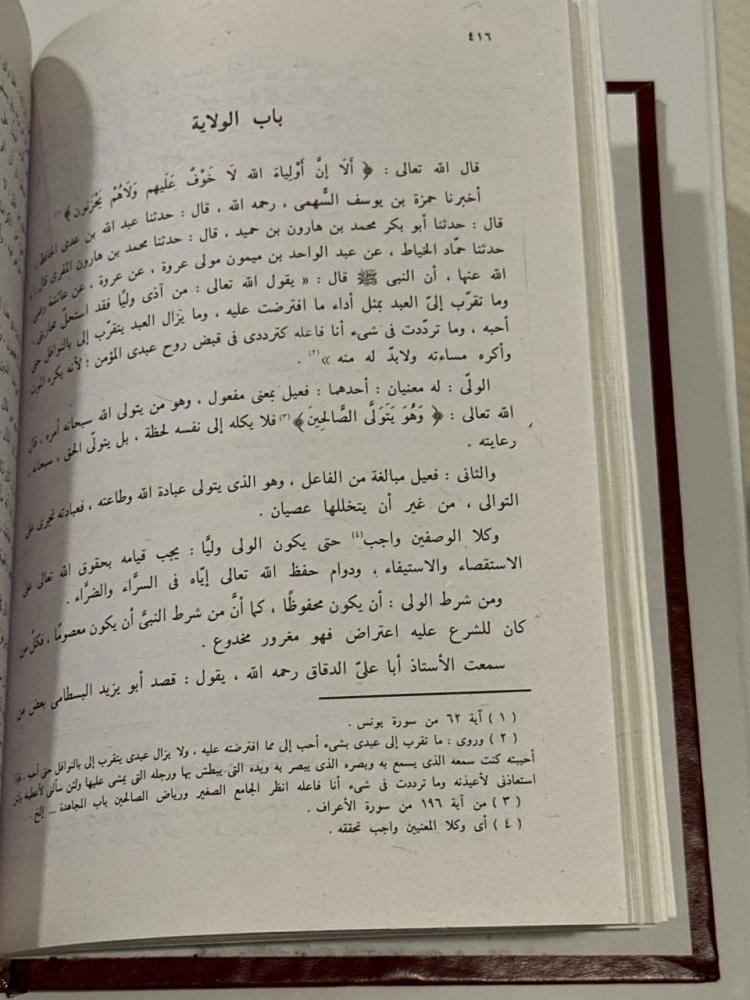 ٤١٦
باب الولاية
قال الله تعالى : ﴿ أَلَا إِنَّ أَوْلِيَاءَ الله لَا خَوْفٌ عَلَيهم وَلَاهُمْ يَحْزَنون ﴾(١)
أخبرنا حمزة بن يوسف السَّهمى ، رحمه الله ، قال : حدثنا عبد الله بن عدى الحافظ ،
قال : حدثنا أبو بكر محمد بن هارون بن حميد ، قال : حدثنا محمد بن هارون المقرى قال :
حدثنا حمَّاد الخياط ، عن عبد الواحد بن ميمون مولى عروة ، عن عروة ، عن عائشة رضى
الله عنها ، أن النبى ﷺ قال : « يقول الله تعالى : من آذى وليًّا فقد استحلّ محاربتى .
وما تقرّب إلىّ العبد بمثل أداء ما افترضت عليه ، وما يزال العبد يتقرّب إلى بالنوافل حتى
أحبه ، وما تردّدت فى شىء أنا فاعله كترددى فى قبض روح عبدى المؤمن ؛ لأنه يكره الموت
وأكره مساءته ولابدّ له منه »(٢) .
الولىّ : له معنيان : أحدهما : فعيل بمعنى مفعول ، وهو من يتولى الله سبحانه أمره ، قال
الله تعالى : ﴿ وَهُوَ يَتَوَلَّى الصَّالِحِينَ ﴾(٣) فلا يكله إلى نفسه لحظة ، بل يتولّى الحق ، سبحانه ،
رعايته .
والثانى : فعيل مبالغة من الفاعل ، وهو الذى يتولى عبادة الله وطاعته ، فعبادته تجرى على
التوالى ، من غير أن يتخللها عصيان .
وكلا الوصفين واجب(٤) حتى يكون الولى وليًّا : يجب قيامه بحقوق الله تعالى على
الاستقصاء والاستيفاء ، ودوام حفظ الله تعالى إيَّاه فى السرَّاء والضرَّاء .
ومن شرط الولى : أن يكون محفوظًا ، كما أنَّ من شرط النبىّ أن يكون معصومًا ، فكلّ من
كان للشرع عليه اعتراض فهو مغرور مخدوع .
سمعت الأستاذ أبا علىّ الدقاق رحمه الله ، يقول : قصد أبو يزيد البسطامى بعض من
( ١ ) آية ٦٢ من سورة يونس .
( ٢ ) وروى : ما تقرب إلى عبدى بشىء أحب إلى مما افترضته عليه ، ولا يزال عبدى يتقرب إلى بالنوافل حتى أحبه ، فإذا
أحببته كنت سمعه الذى يسمع به وبصره الذى يبصر به ويده التى يبطش بها ورجله التى يمشى عليها ولئن سألنى لأعطينه ولئن
استعاذنى لأعيذنه وما ترددت فى شىء أنا فاعله انظر الجامع الصغير ورياض الصالحين باب المجاهدة ... إلخ .
( ٣ ) من آية ١٩٦ من سورة الأعراف .
( ٤ ) أى وكلا المعنيين واجب تحققه .